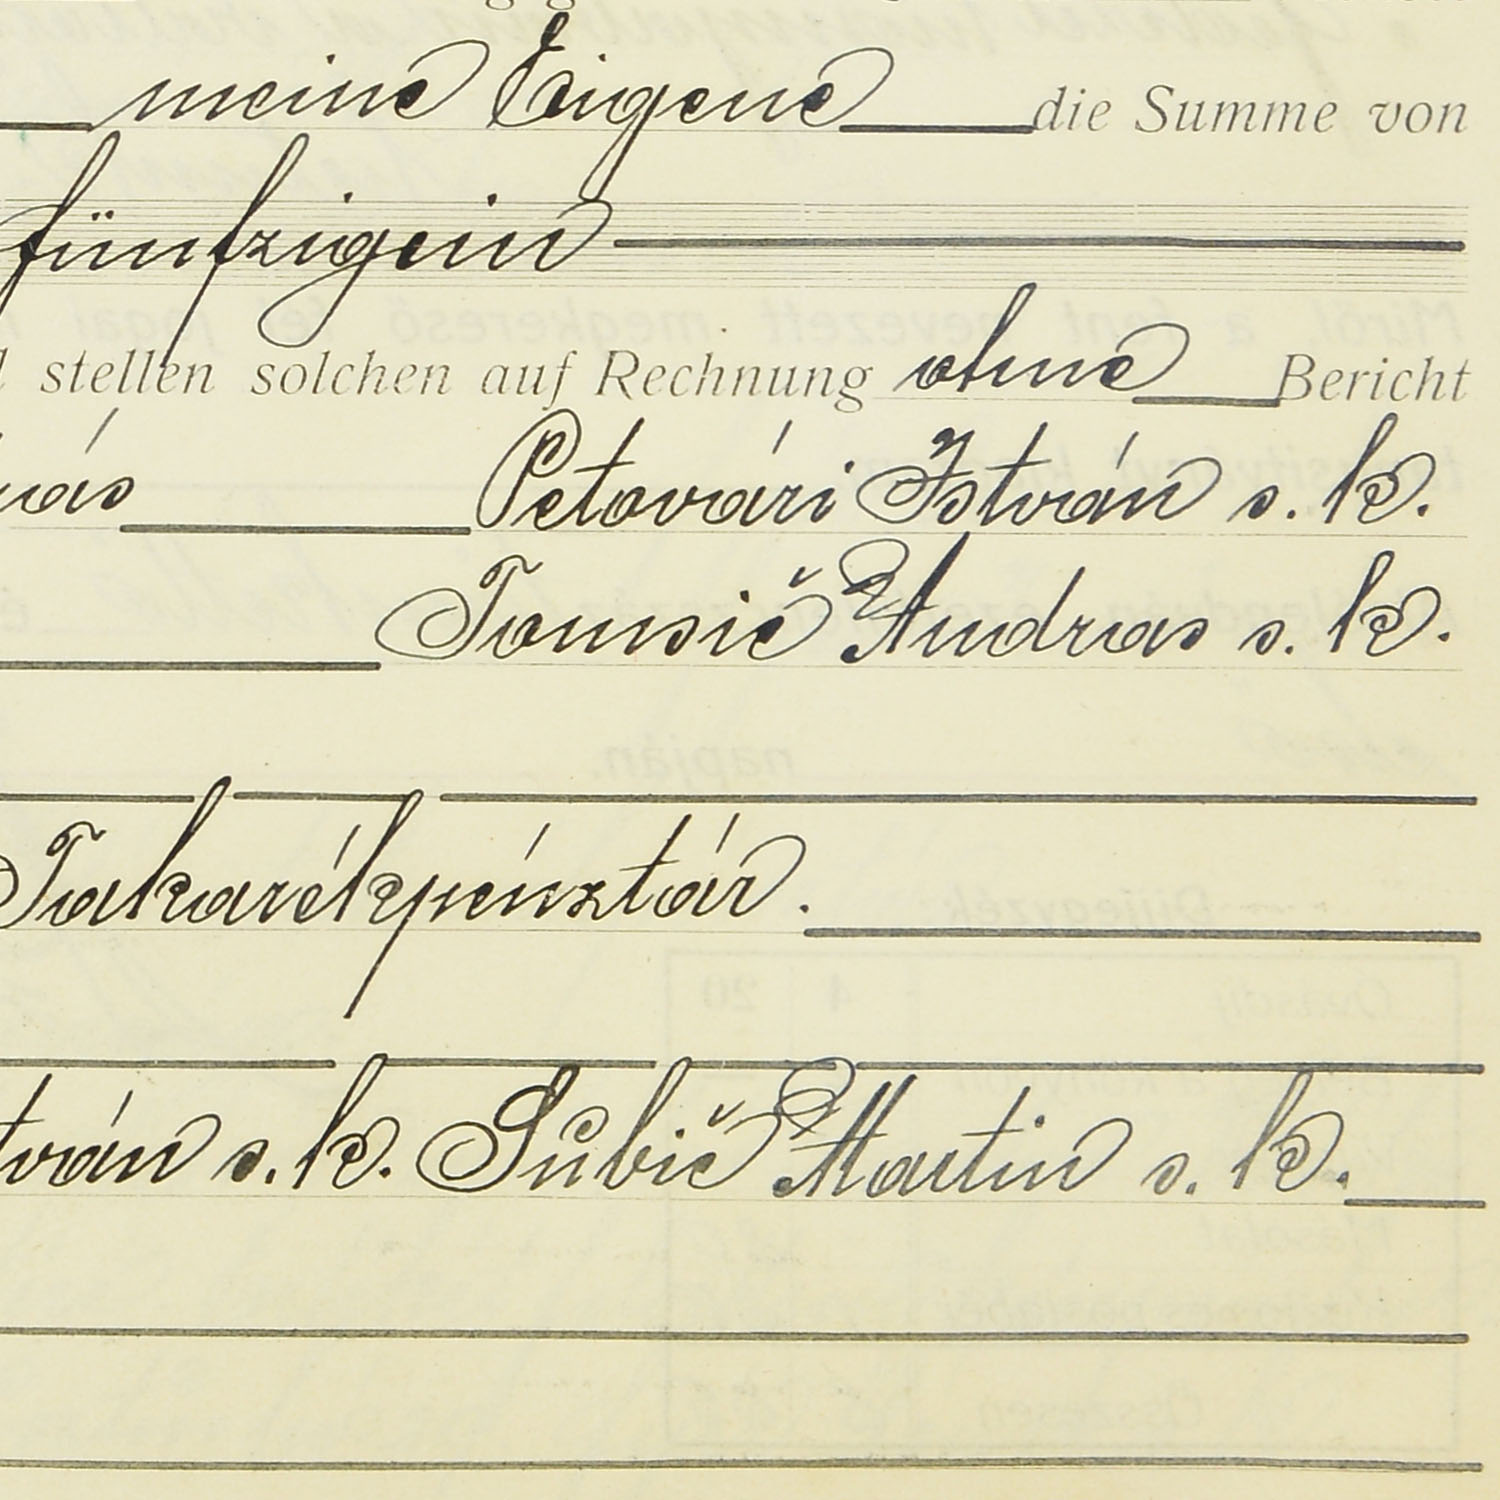 meine Eigene die Summe von
fünfzigein
stellen solchen auf Rechnung ohne Bericht
Petovári István s. k.
Tomsič Andras s. k.
Takarékpénztár.
s. k. Subič Martin s. k.